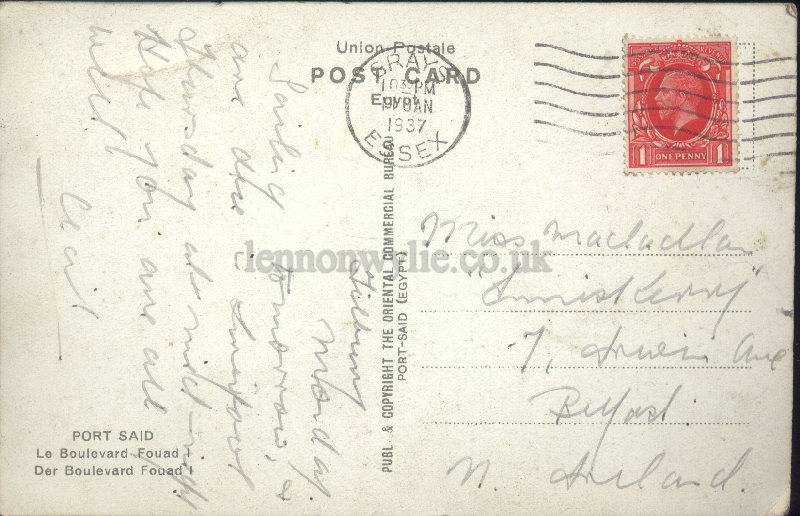 Union Postale
POST CARD
Egypt
GRAYS
10 30 PM
JAN
1937
ESSEX
1 ONE PENNY 1
PUBL & COPYRIGHT THE ORIENTAL COMMERCIAL BUREAU
PORT-SAID (EGYPT)
Tilbury
Monday
Sailing tomorrow &
are due
Thursday at mid-night
Hope you are all
well
Miss Maclachlan
"Inniskerry"
7, Irwin Ave
Belfast
N. Ireland.
PORT SAID
Le Boulevard Fouad
Der Boulevard Fouad
lennonwylie.co.uk